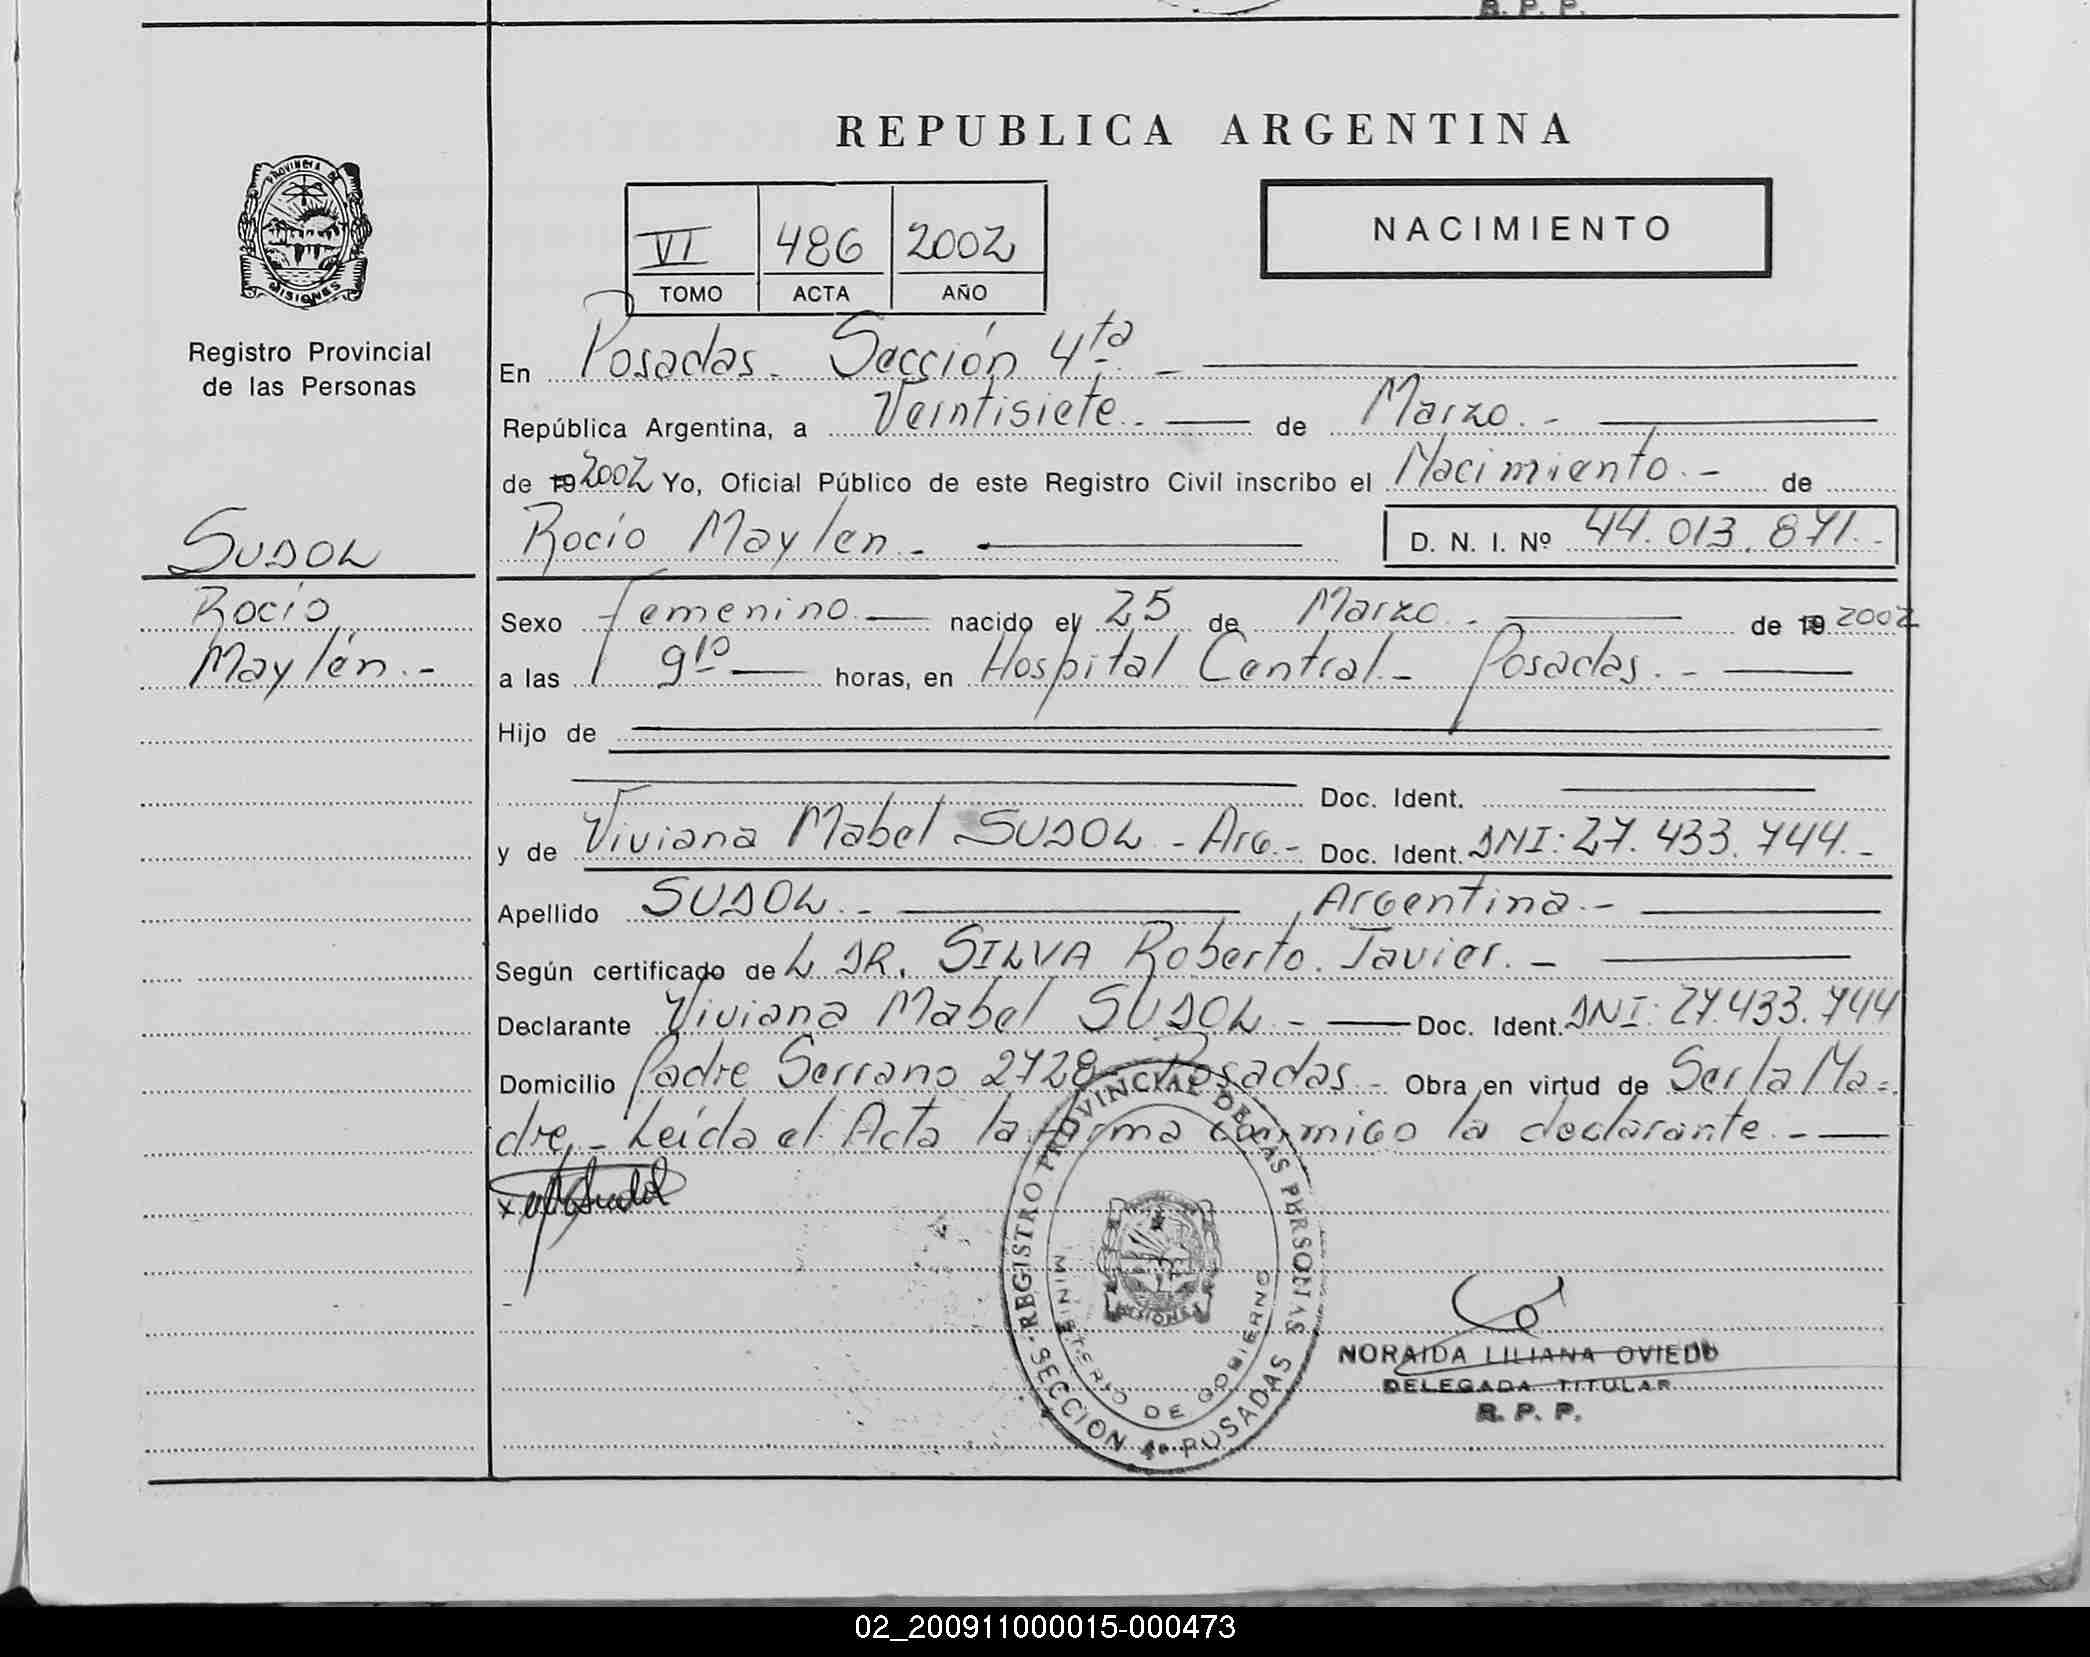 R. P. P.
REPUBLICA ARGENTINA
PROVINCIA DE
MISIONES
Registro Provincial
de las Personas
VI 486 2002
TOMO ACTA AÑO
NACIMIENTO
En Posadas. Sección 4ta. -
República Argentina, a Veintisiete. - de Marzo. -
de 19 2002 Yo, Oficial Público de este Registro Civil inscribo el Nacimiento. - de
Rocío Maylen. - D. N. I. Nº 44.013.871. -
SUDOL
Rocío
Maylén. -
Sexo Femenino. - nacido el 25 de Marzo. - de 19 2002
a las 9 10 - horas, en Hospital Central. - Posadas. -
Hijo de
Doc. Ident.
y de Viviana Mabel SUDOL - Arg. - Doc. Ident. DNI: 27.433.744. -
Apellido SUDOL. - Argentina. -
Según certificado de L DR. SILVA Roberto. Javier. -
Declarante Viviana Mabel SUDOL - Doc. Ident. DNI: 27.433.744
Domicilio Padre Serrano 2728 - Posadas. - Obra en virtud de Ser la Ma=
dre. - Leída el Acta la firma conmigo la declarante. -
x Sudol
REGISTRO PROVINCIAL DE LAS PERSONAS
SECCION 4a POSADAS
MINISTERIO DE GOBIERNO
MISIONES
NORAIDA LILIANA OVIEDO
DELEGADA TITULAR
R. P. P.
02_200911000015-000473